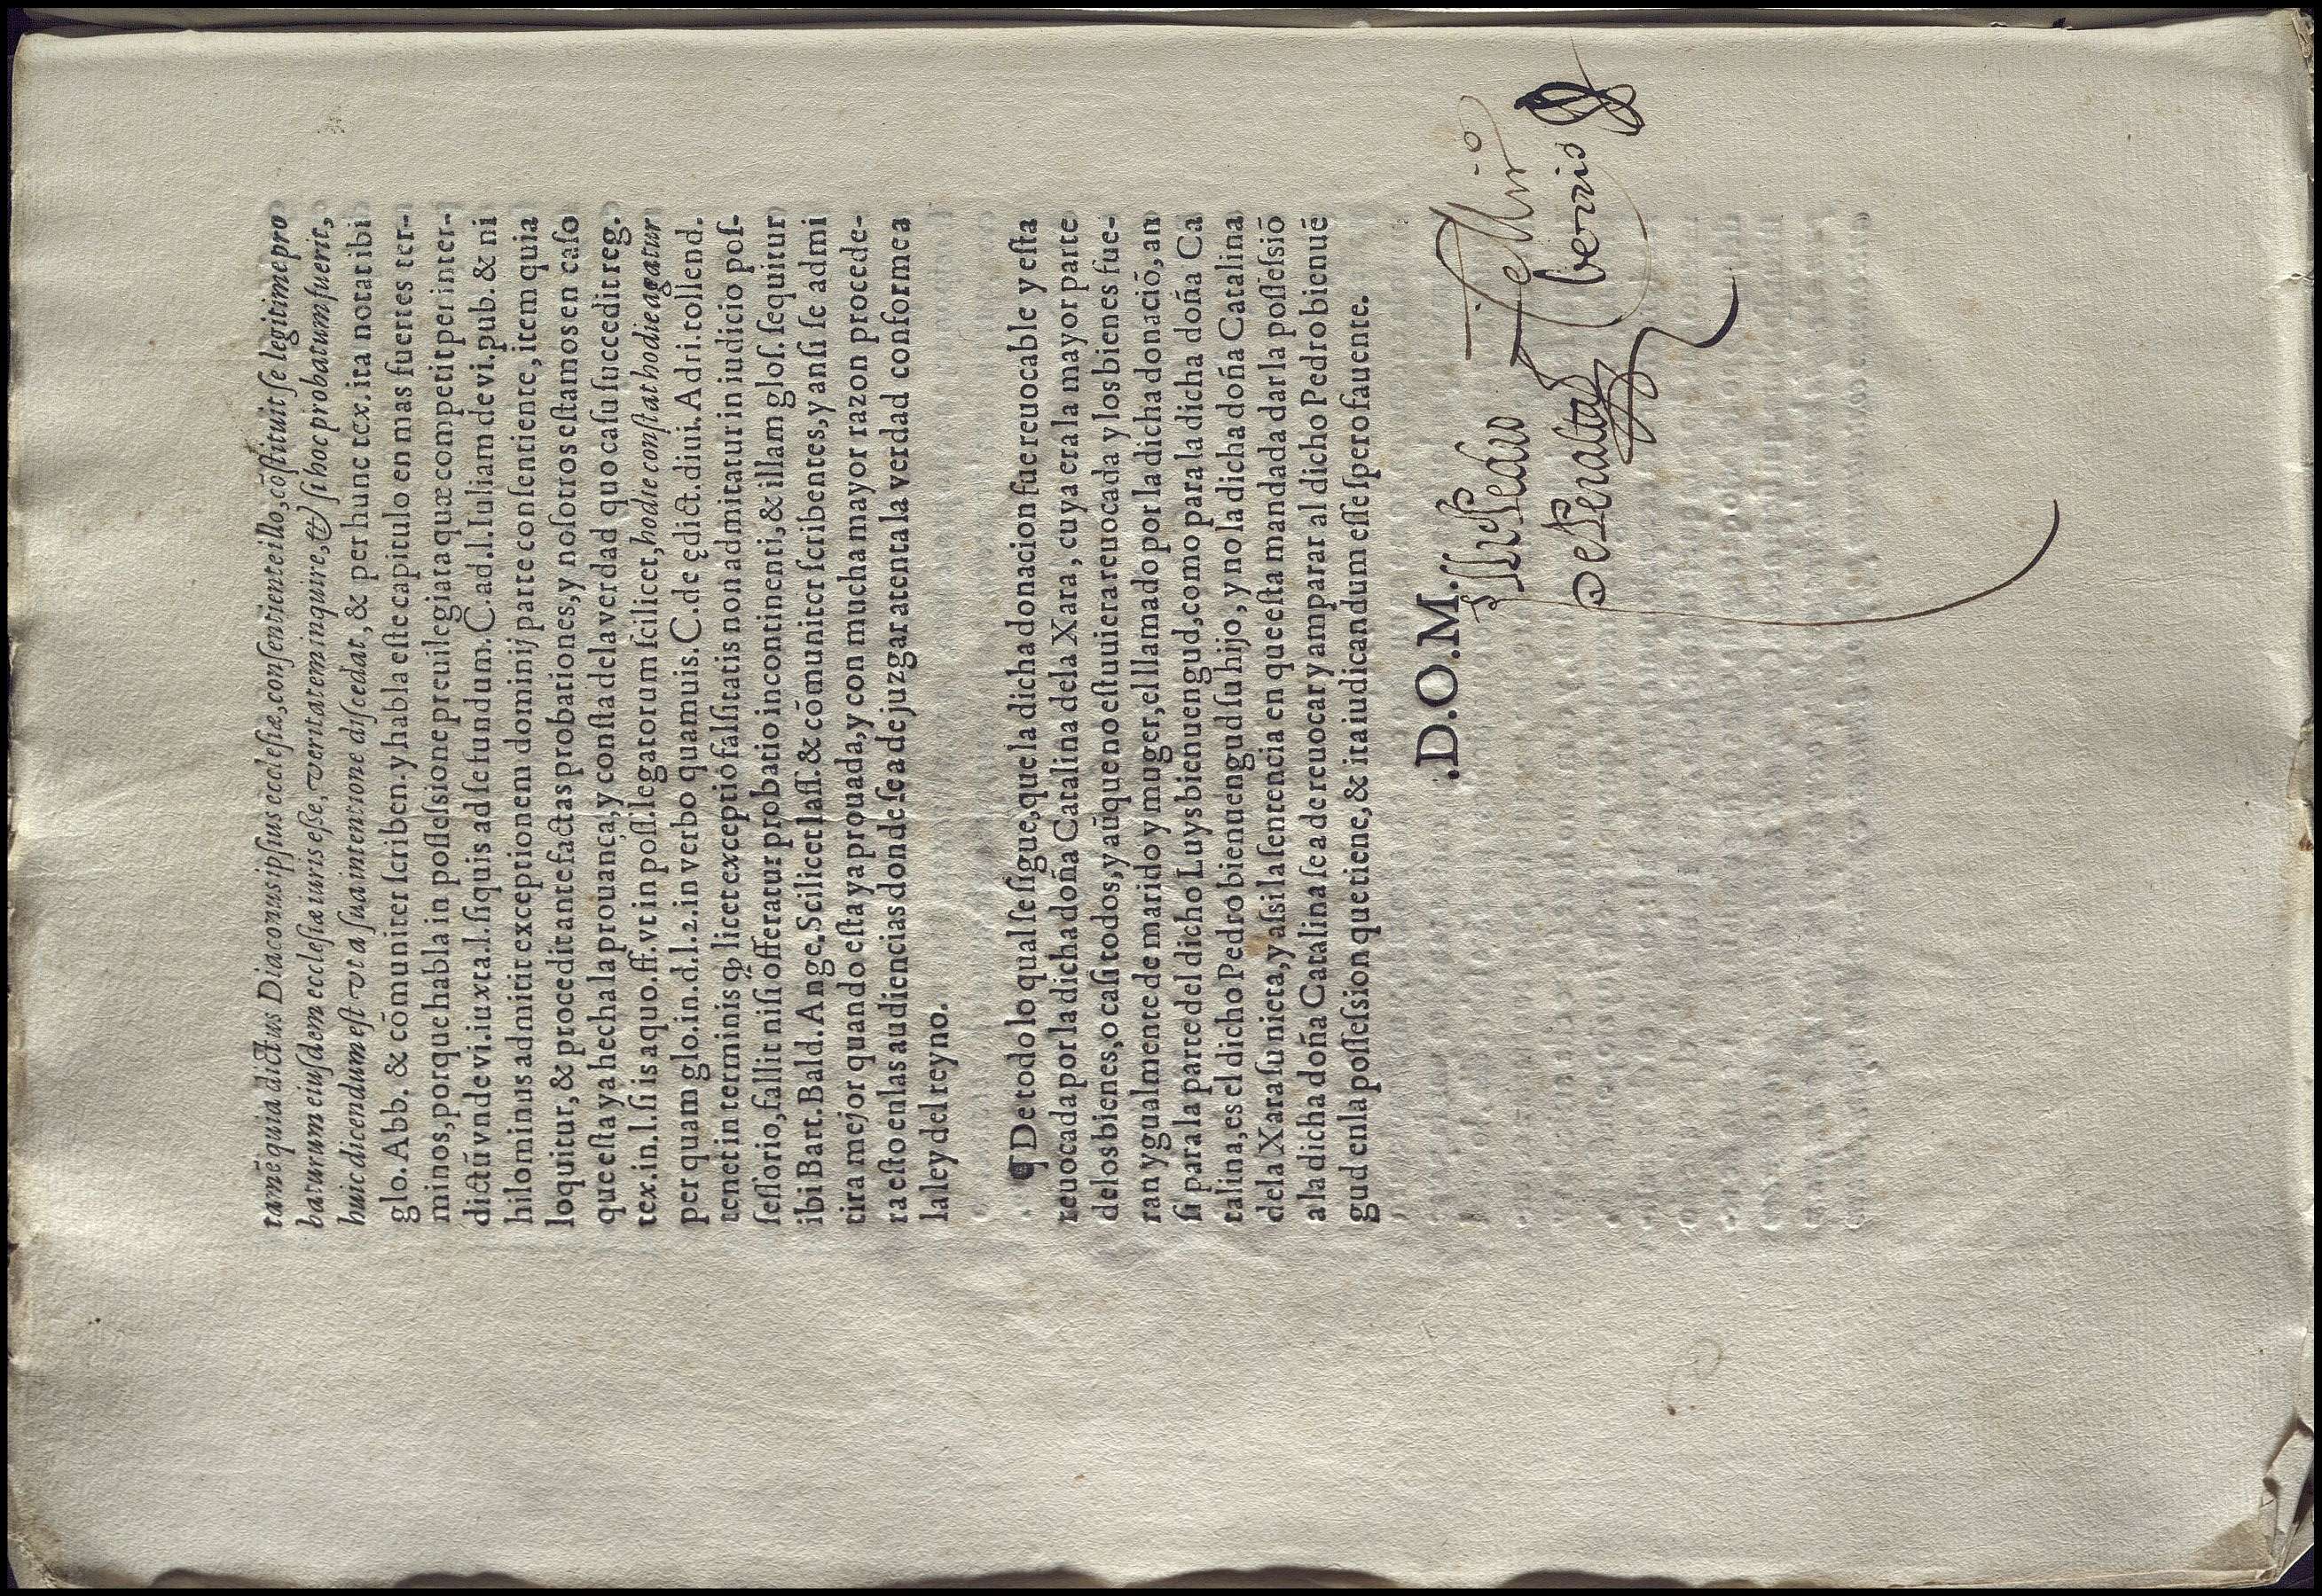 tamē quia dictus Diaconus ipsius ecclesiæ, consentiente illo, cōstituit se legitime pro
baturum eiusdem ecclesiæ iuris eße, veritatem inquire, & si hoc probatum fuerit,
huic dicendum est vt a sua intentione discedat, & per hunc tex. ita notat ibi
glo. Abb. & cōmuniter scriben. y habla este capitulo en mas fuertes ter-
minos, porque habla in possessione preuilegiata quæ competit per inter-
dictū vnde vi. iuxta. l. siquis ad se fundum. C. ad. l. Iuliam de vi. pub. & ni
hilominus admitit exceptionem dominij parte consentiente, item quia
loquitur, & procedit ante factas probationes, y nosotros estamos en caso
que esta ya hecha la prouança, y consta dela verdad quo casu succedit reg.
tex. in. l. si is a quo. ff. vt in poss. legatorum scilicet, hodie constat hodie agatur
per quam glo. in. d. l. 2. in verbo quamuis. C. de ędict. diui. Adri. tollend.
tenet in terminis ꝙ licet exceptiō falsitatis non admitatur in iudicio pos-
sessorio, fallit nisi offeratur probatio incontinenti, & illam glos. sequitur
ibi Bart. Bald. Ange. Scilicet Iass. & cōmuniter scribentes, y ansi se admi
tira mejor quando esta ya prouada, y con mucha mayor razon procede-
ra esto en las audiencias donde se a de juzgar atenta la verdad conforme a
la ley del reyno.
¶ De todo lo qual se sigue, que la dicha donacion fue reuocable y esta
reuocada por la dicha doña Catalina dela Xara, cuya era la mayor parte
delos bienes, o casi todos, y aūque no estuuiera reuocada y los bienes fue-
ran ygualmente de marido y muger, el llamado por la dicha donació, an
si para la parte del dicho Luys bienuengud, como para la dicha doña Ca
talina, es el dicho Pedro bienuengud su hijo, y no la dicha doña Catalina
dela Xara su nieta, y assi la sentencia en que esta mandada dar la possessiō
a la dicha doña Catalina se a de reuocar y amparar al dicho Pedro bienuē
gud en la possession que tiene, & ita iudicandum esse spero fauente.
.D.O.M.
Pedro Tellio
de Peralta berrio